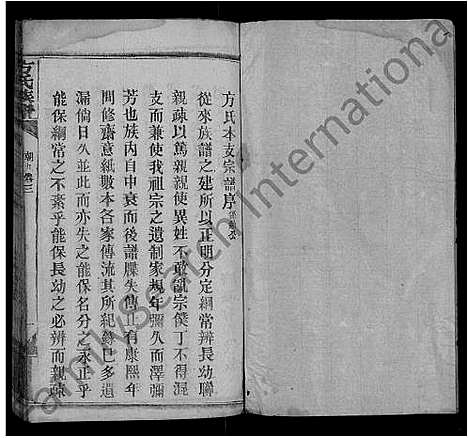 方氏本支宗譜序
從來族譜之建所以正明分定綱常辨長幼聯
親疎以篤親親使異姓不敢亂宗僕丁不得混
支而兼使我祖宗之遺制家規年彌久而澤彌
芳也族內自中衰而後譜牒失傳止有康熙年
間修齋意紙數本各家傳流其所紀錄已多遺
漏倘日久並此而亦失之能保名分之永正乎
能保綱常之不紊乎能保長幼之必辨而親疎
方氏族譜
卷三
FamilySearch International